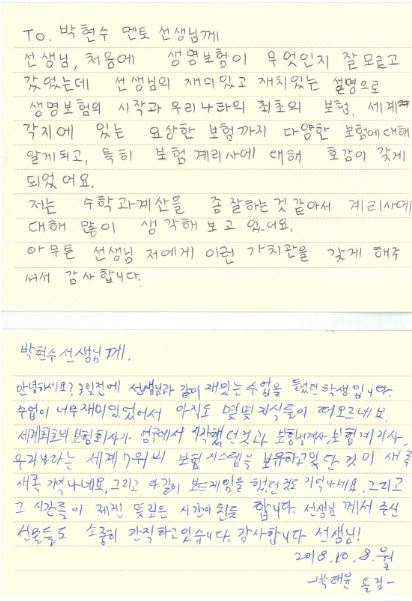 To. 박현수 멘토 선생님께
선생님, 처음에 생명보험이 무엇인지 잘 모르고
갔었는데 선생님의 재미있고 재치있는 설명으로
생명보험의 시작과 우리나라의 최초의 보험, 세계
각지에 있는 요상한 보험까지 다양한 보험에 대해
알게되고, 특히 보험 계리사에 대해 호감이 갖게
되었어요.
저는 수학과계산을 좀 잘하는것 같아서 계리사에
대해 많이 생각해 보고 있어요.
아무튼 선생님 저에게 이런 가치관을 갖게 해주
셔서 감사합니다.
박현수선생님께.
안녕하세요? 3일전에 선생님과 같이 재밌는 수업을 들었던 학생입니다.
수업이 너무재미있었어서 아직도 몇몇 지식들이 떠오르네요.
세계최초의 보험회사가 영국에서 시작했던것과 보험설계사, 보험계리사,
우리나라는 세계 7위의 보험 시스템을 보유하고있단 것이 새록
새록 기억나네요. 그리고 다같이 보드게임을 했던 것도 기억나네요. 그리고
그 시간들이 제겐 뜻깊은 시간이 된듯 합니다. 선생님께서 주신
선물들도 소중히 간직하고있습니다. 감사합니다 선생님!
2018.10.8.월
올림-